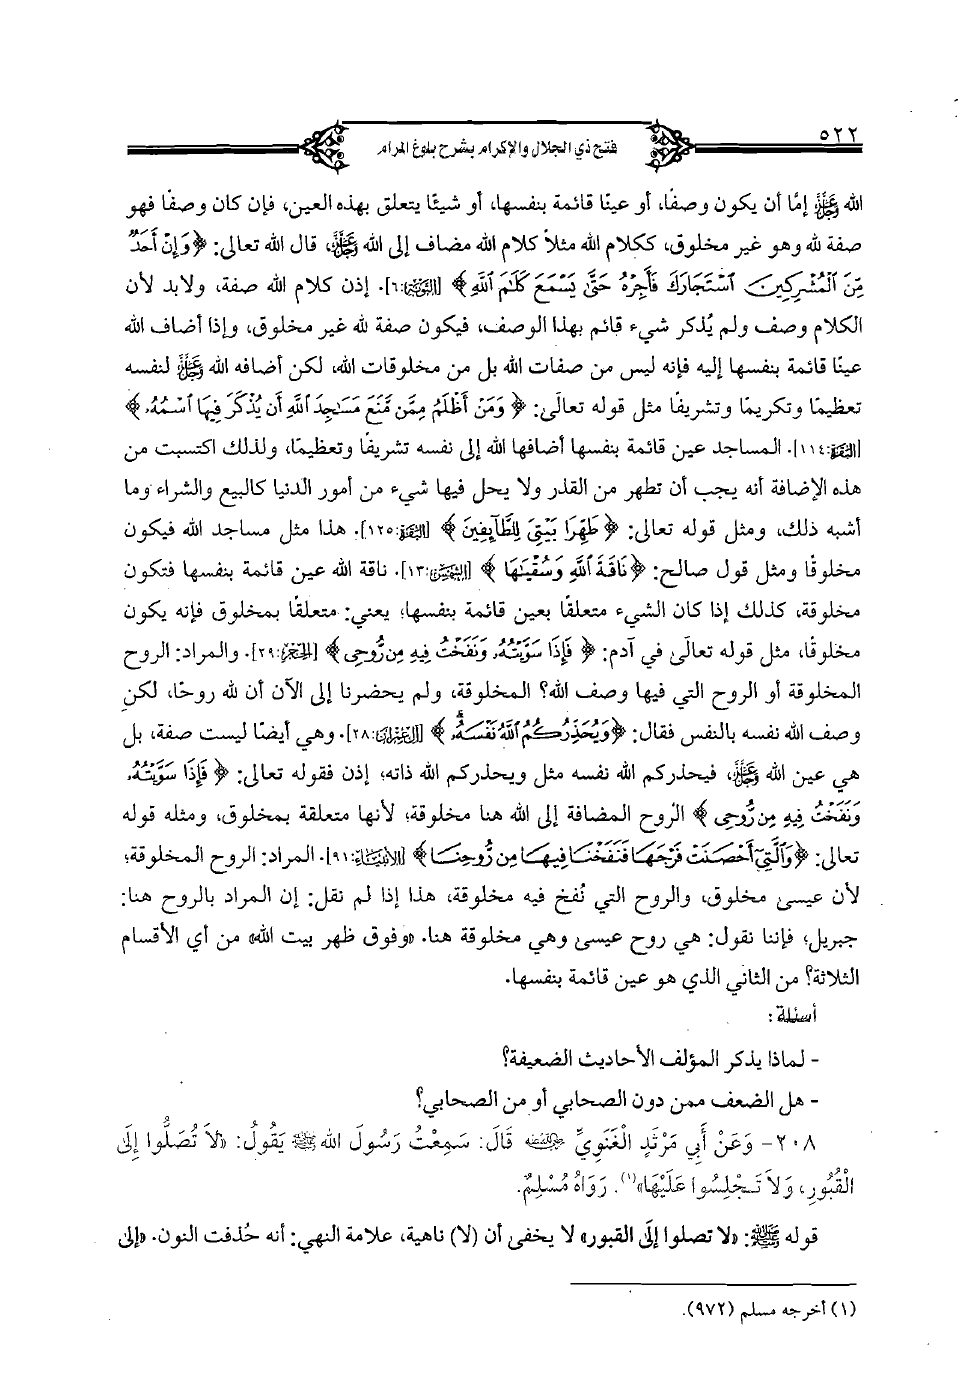 ٥٢٢
فتح ذي الجلال والإكرام بشرح بلوغ المرام
الله ﷻ إمَّا أن يكون وصفًا، أو عينًا قائمة بنفسها، أو شيئًا يتعلق بهذه العين، فإن كان وصفًا فهو
صفة لله وهو غير مخلوق، ككلام الله مثلاً كلام الله مضاف إلى الله ﷻ، قال الله تعالى: ﴿وَإِنْ أَحَدٌ
مِّنَ ٱلْمُشْرِكِينَ ٱسْتَجَارَكَ فَأَجِرْهُ حَتَّىٰ يَسْمَعَ كَلَـٰمَ ٱللَّهِ﴾ [التوبة:٦]. إذن كلام الله صفة، ولابد لأن
الكلام وصف ولم يُذكر شيء قائم بهذا الوصف، فيكون صفة لله غير مخلوق، وإذا أضاف الله
عينًا قائمة بنفسها إليه فإنه ليس من صفات الله بل من مخلوقات الله، لكن أضافه الله ﷻ لنفسه
تعظيمًا وتكريمًا وتشريفًا مثل قوله تعالى: ﴿وَمَنْ أَظْلَمُ مِمَّن مَّنَعَ مَسَـٰجِدَ ٱللَّهِ أَن يُذْكَرَ فِيهَا ٱسْمُهُۥ﴾
[البقرة:١١٤]. المساجد عين قائمة بنفسها أضافها الله إلى نفسه تشريفًا وتعظيمًا، ولذلك اكتسبت من
هذه الإضافة أنه يجب أن تطهر من القذر ولا يحل فيها شيء من أمور الدنيا كالبيع والشراء وما
أشبه ذلك، ومثل قوله تعالى: ﴿طَهِّرَا بَيْتِىَ لِلطَّآئِفِينَ﴾ [البقرة:١٢٥]. هذا مثل مساجد الله فيكون
مخلوقًا ومثل قول صالح: ﴿نَاقَةَ ٱللَّهِ وَسُقْيَـٰهَا﴾ [الشمس:١٣]. ناقة الله عين قائمة بنفسها فتكون
مخلوقة، كذلك إذا كان الشيء متعلقًا بعين قائمة بنفسها؛ يعني: متعلقًا بمخلوق فإنه يكون
مخلوقًا، مثل قوله تعالى في آدم: ﴿فَإِذَا سَوَّيْتُهُۥ وَنَفَخْتُ فِيهِ مِن رُّوحِى﴾ [الحجر:٢٩]. والمراد: الروح
المخلوقة أو الروح التي فيها وصف الله؟ المخلوقة، ولم يحضرنا إلى الآن أن لله روحًا، لكن
وصف الله نفسه بالنفس فقال: ﴿وَيُحَذِّرُكُمُ ٱللَّهُ نَفْسَهُۥ﴾ [آل عمران:٢٨]. وهي أيضًا ليست صفة، بل
هي عين الله ﷻ، فيحذركم الله نفسه مثل ويحذركم الله ذاته؛ إذن فقوله تعالى: ﴿فَإِذَا سَوَّيْتُهُۥ
وَنَفَخْتُ فِيهِ مِن رُّوحِى﴾ الرُوح المضافة إلى الله هنا مخلوقة؛ لأنها متعلقة بمخلوق، ومثله قوله
تعالى: ﴿وَٱلَّتِىٓ أَحْصَنَتْ فَرْجَهَا فَنَفَخْنَا فِيهَا مِن رُّوحِنَا﴾ [الأنبياء:٩١]. المراد: الروح المخلوقة؛
لأن عيسى مخلوق، والروح التي نُفخ فيه مخلوقة، هذا إذا لم نقل: إن المراد بالروح هنا:
جبريل؛ فإننا نقول: هي روح عيسى وهي مخلوقة هنا. «وفوق ظهر بيت الله» من أي الأقسام
الثلاثة؟ من الثاني الذي هو عين قائمة بنفسها.
أسئلة:
- لماذا يذكر المؤلف الأحاديث الضعيفة؟
- هل الضعف ممن دون الصحابي أو من الصحابي؟
٢٠٨- وَعَنْ أَبِي مَرْثَدٍ الْغَنَوِيِّ رضي الله عنه قَالَ: سَمِعْتُ رَسُولَ الله ﷺ يَقُولُ: «لاَ تُصَلُّوا إِلَى
الْقُبُورِ، وَلاَ تَجْلِسُوا عَلَيْهَا»(١). رَوَاهُ مُسْلِمٌ.
قوله ﷺ: «لا تصلوا إلى القبور» لا يخفى أن (لا) ناهية، علامة النهي: أنه حُذفت النون. «إلى
(١) أخرجه مسلم (٩٧٢).